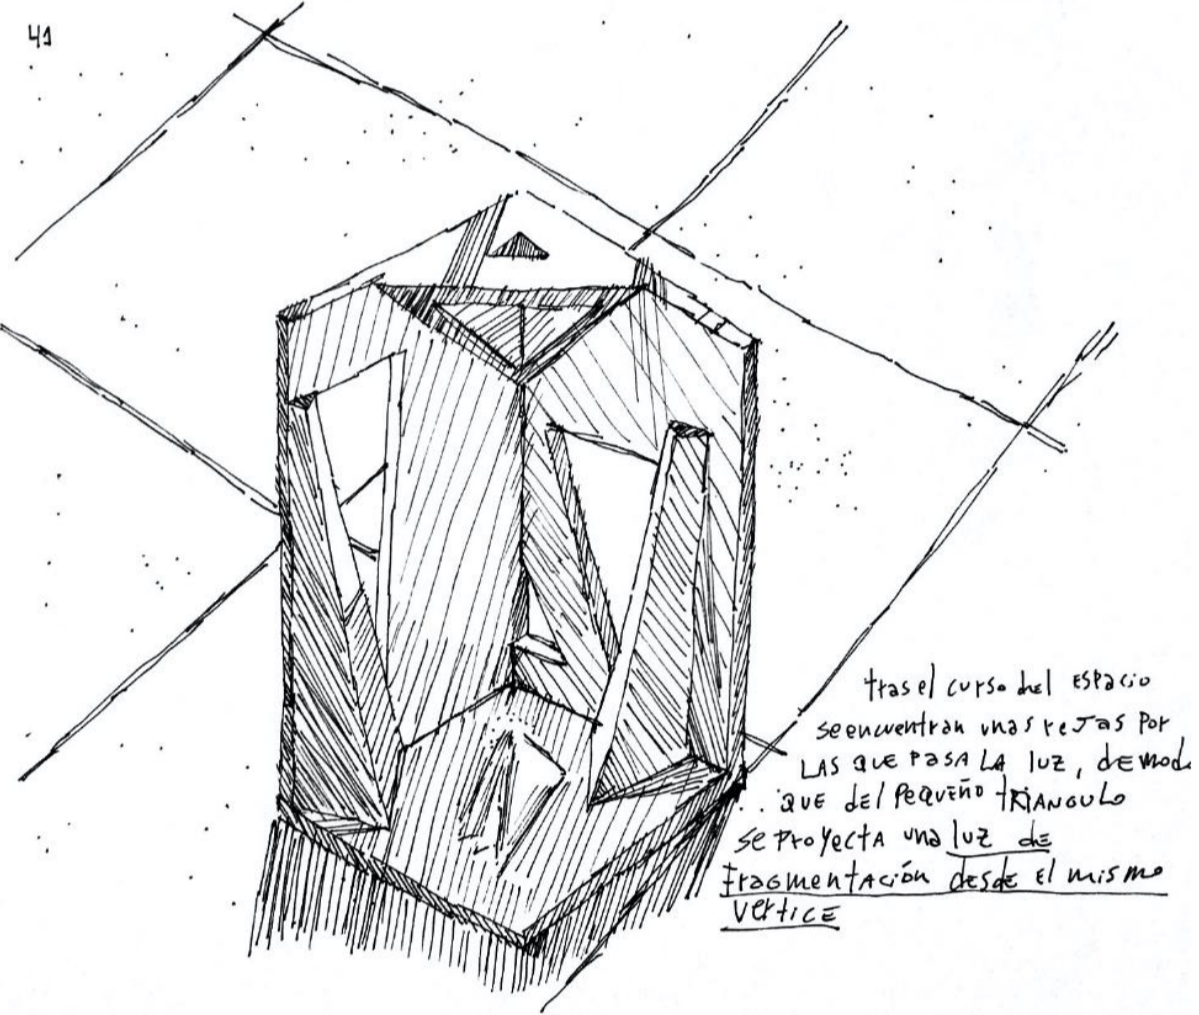 41
tras el curso del espacio
se encuentran unas rejas por
LAS QUE PASA LA luz, de modo
que del pequeño triangulo
se proyecta una luz de
fragmentación desde el mismo
vertice